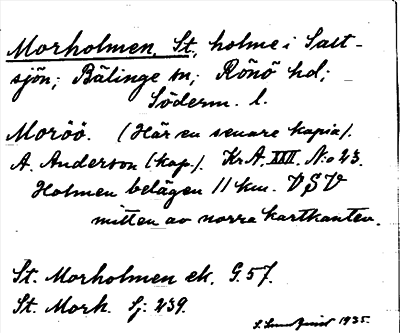 Morholmen, St., holme i Salt-
sjön; Bälinge sn; Rönö hd;
Söderm. l.
Moröö. (Här en senare kopia).
A. Anderson (kop.). Kr.A. XXII. N:o 23.
Holmen belägen 11 km. VSV
mitten av norra kartkanten.
St. Morholmen ek. G. 57.
St. Morh. Sj: 239.
1935.